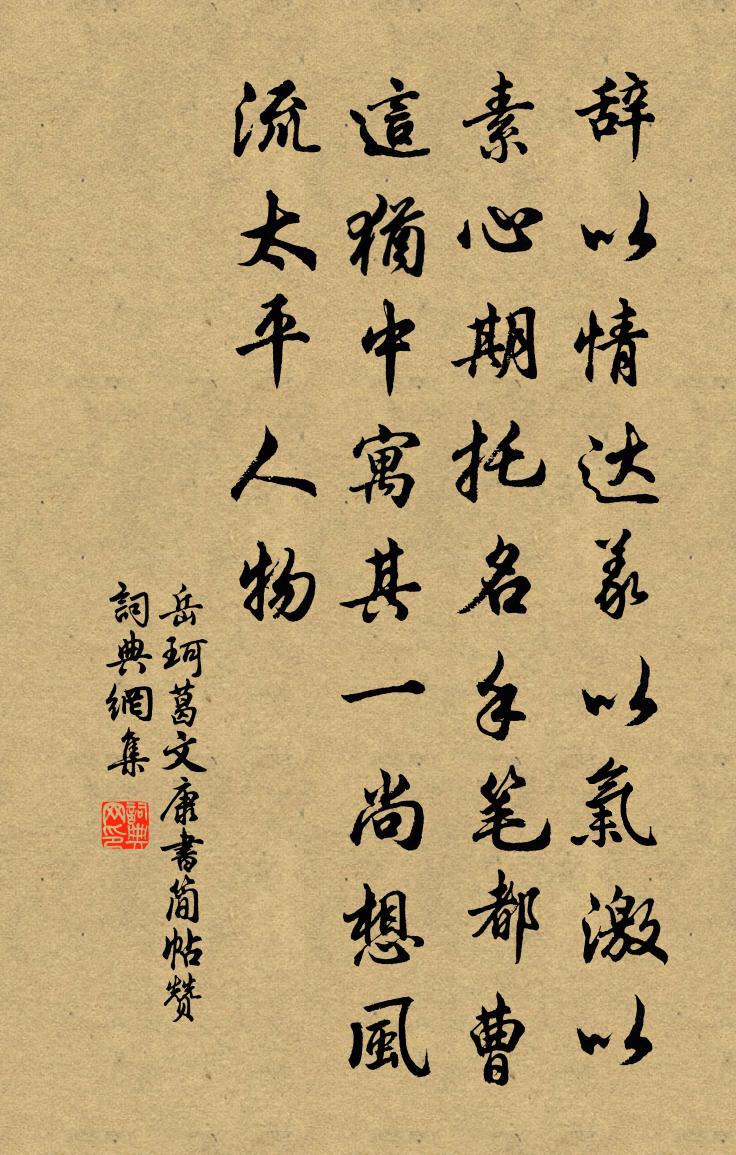 辞以情达义以氣激以
素心期托名手笔都曹
這猶中寓其一尚想風
流太平人物
岳珂葛文康書简帖赞
詞典網集
詞典网印